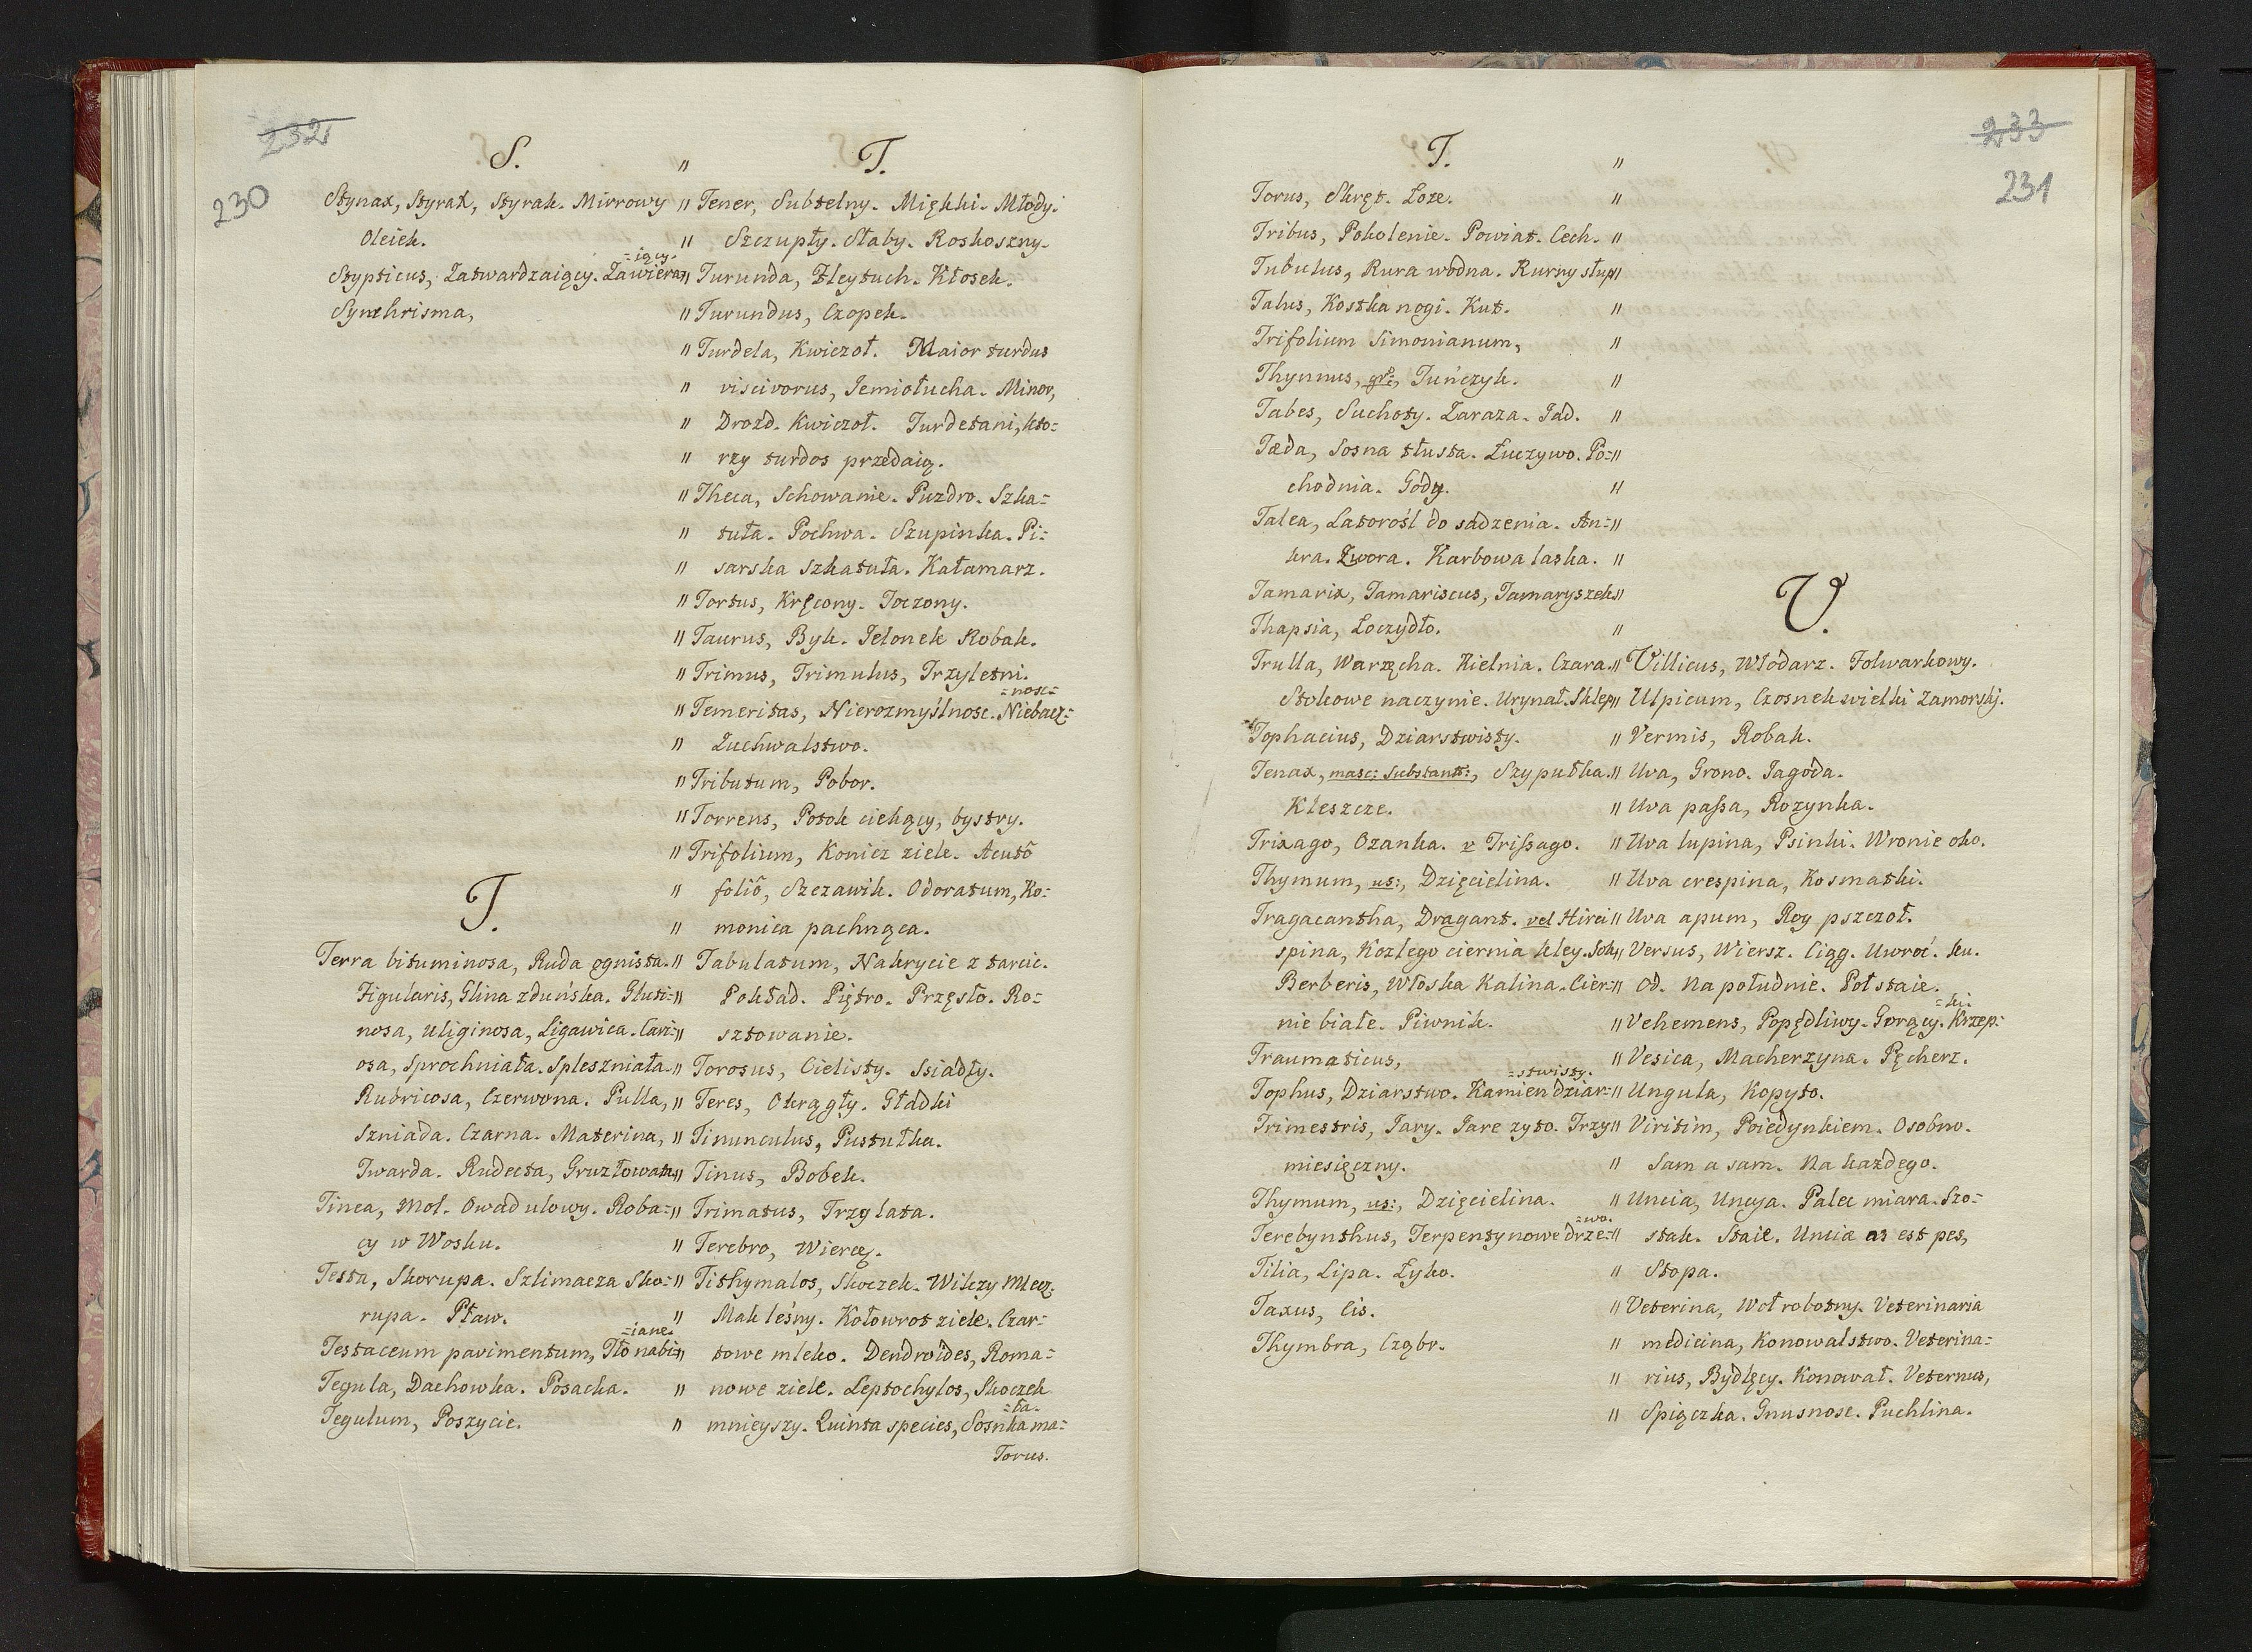 232
230
S.
Stynax, Styrax, Styrak. Mirrowy
Oleiek.
=iący.
Stypticus, Zatwardzaiący. Zawiera=
Synchrisma,
T.
Terra bituminosa, Ruda ognista.
Figularis, Glina zduńska. Gluti=
nosa, uliginosa, Ligawica. Cari=
osa, Sprochniała. Spleszniała.
Rubricosa, Czerwona. Pulla,
Szniada. Czarna. Materina,
Twarda. Rudecta, Gruzłowata
Tinea, Mol. Owad ulowy. Roba=
cy w Wosku.
Testa, Skorupa. Szlimacza Sko=
rupa. Pław.
=iane.
Testaceum pavimentum, Tło nabi=
Tegula, Dachowka. Posacka.
Tegulum, Poszycie.
T.
Tener, Subtelny. Miękki. Młody.
Szczupły. Słaby. Roskoszny.
Turunda, Fleytuch. Kłosek.
Turundus, Czopek.
Turdela, Kwiczoł. Maior turdus
viscivorus, Jemiołucha. Minor,
Drozd. Kwiczoł. Turdetani, kto=
rzy turdos przedaią.
Theca, Schowanie. Puzdro. Szka=
tuła. Pochwa. Szupinka. Pi=
sarska szkatuła. Kałamarz.
Tortus, Kręcony. Toczony.
Taurus, Byk. Jelonek Robak.
Trimus, Trimulus, Trzyletni.
=nosc=
Temeritas, Nierozmyślnosc. Niebacz=
Zuchwalstwo.
Tributum, Pobor.
Torrens, Potok ciekący, bystry.
Trifolium, Konicz ziele. Acutô
foliô, Szczawik. Odoratum, Ko=
monica pachnąca.
Tabulatum, Nakrycie z tarcic.
Pokład. Piętro. Przęsło. Ro=
sztowanie.
Torosus, Cielisty. Ssiadły.
Teres, Okrągły. Gładki
Tinunculus, Pustułka.
Tinus, Bobek.
Trimatus, Trzy lata.
Terebro, Wiercę.
Tithymalos, Skoczek. Wilczy Mlecz.
Mak leśny. Kołowrot ziele. Czar=
towe mleko. Dendroides, Roma=
nowe ziele. Leptochylos, Skoczek
=ła.
mnieyszy. Quinta species, Sosnka ma=
Torus.
233
231
T.
Torus, Skręt. Loze.
Tribus, Pokolenie. Powiat. Cech.
Tubulus, Rura wodna. Rurny słup
Talus, Kostka nogi. Kut.
Trifolium Simonianum,
Thynnus, grê, Tuńczyk.
Tabes, Suchoty. Zaraza. Jad.
Tæda, Sosna tłusta. Łuczywo. Po=
chodnia. Gody.
Talea, Latorośl do sadzenia. An=
kra. Zwora. Karbowa laska.
Tamarix, Tamariscus, Tamaryszek
Thapsia, Loczydło.
Trulla, Warzęcha. Kielnia. Czara.
Stokowe naczynie. Urynał. Sklep
Tophacius, Dziarstwisty.
Tenax, masc: Substant:, Szypułka.
Kleszcze.
Trixago, Ozanka. v Trissago.
Thymum, us:, Dzięcielina.
Tragacantha, Dragant. vel Hirci
spina, Kozlego ciernia kley. Sok
Berberis, Włoska Kalina. Cier=
nie białe. Piwnik.
Traumaticus,
=stwisty.
Tophus, Dziarstwo. Kamien dziar=
Trimestris, Jary. Jare zyto. Trzy
miesięczny.
Thymum, us:, Dzięcielina.
=wo.
Terebynthus, Terpentynowe drze=
Tilia, Lipa. Łyko.
Taxus, Cis.
Thymbra, Cząbr.
V.
Villicus, Włodarz. Folwarkowy.
Ulpicum, Czosnek wielki Zamorski.
Vermis, Robak.
Uva, Grono. Jagoda.
Uva passa, Rozynka.
Uva lupina, Psinki. Wronie oko.
Uva crespina, Kosmatki.
Uva apum, Roy pszczoł.
Versus, Wiersz. Ciąg. Uwroć. ku.
Od. Na południe. Poł staie.
=ki.
Vehemens, Popędliwy. Gorący. Krzep=
Vesica, Macherzyna. Pęcherz.
Ungula, Kopyto.
Viritim, Poiedynkiem. Osobno.
Sam a sam. Na kazdego.
Uncia, Uncya. Palec miara. Szo=
stak. Staie. Unciæ as est pes,
Stopa.
Veterina, Woł robotny. Veterinaria
medicina, Konowalstwo. Veterina=
rius, Bydlęcy. Konował. Veternus,
Spiączka. Gnusnosc. Puchlina.